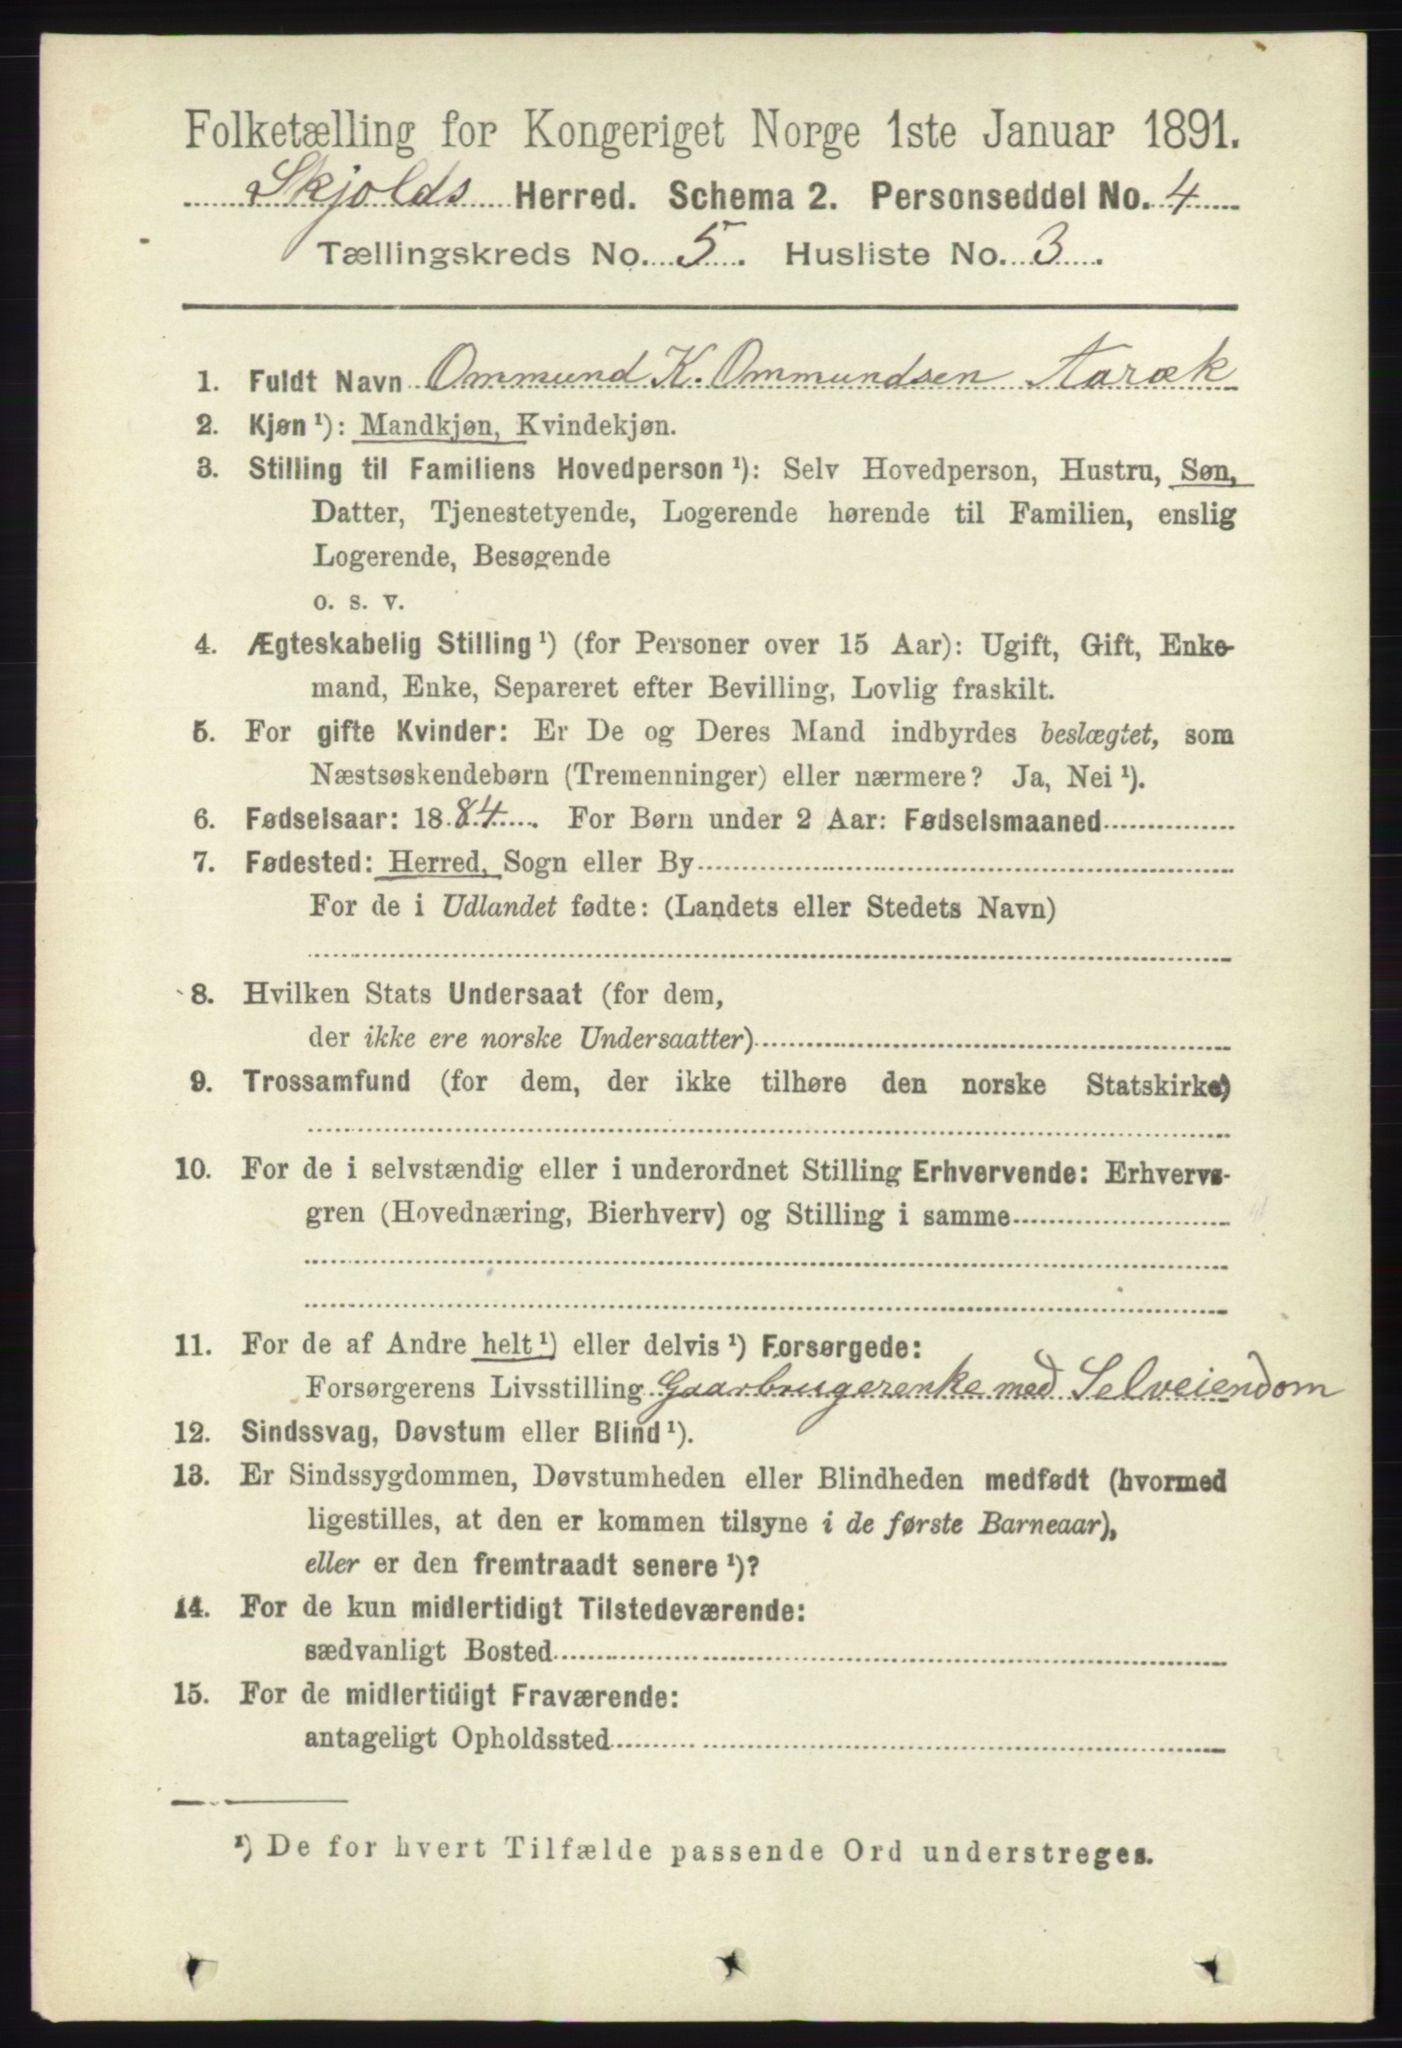 Folketælling for Kongeriget Norge 1ste Januar 1891.
Skjolds Herred. Schema 2. Personseddel No. 4
Tællingskreds No. 5. Husliste No. 3.
1. Fuldt Navn Ommund K. Ommundsen Aaræk
2. Kjøn ¹): Mandkjøn, Kvindekjøn.
3. Stilling til Familiens Hovedperson ¹): Selv Hovedperson, Hustru, Søn,
Datter, Tjenestetyende, Logerende hørende til Familien, enslig
Logerende, Besøgende
o. s. v.
4. Ægteskabelig Stilling ¹) (for Personer over 15 Aar): Ugift, Gift, Enke-
mand, Enke, Separeret efter Bevilling, Lovlig fraskilt.
5. For gifte Kvinder: Er De og Deres Mand indbyrdes beslægtet, som
Næstsøskendebørn (Tremenninger) eller nærmere? Ja, Nei ¹).
6. Fødselsaar: 1884. For Børn under 2 Aar: Fødselsmaaned
7. Fødested: Herred, Sogn eller By
For de i Udlandet fødte: (Landets eller Stedets Navn)
8. Hvilken Stats Undersaat (for dem,
der ikke ere norske Undersaatter)
9. Trossamfund (for dem, der ikke tilhøre den norske Statskirke)
10. For de i selvstændig eller i underordnet Stilling Erhvervende: Erhvervs-
gren (Hovednæring, Bierhverv) og Stilling i samme
11. For de af Andre helt ¹) eller delvis ¹) Forsørgede:
Forsørgerens Livsstilling Gaarbrugerenke med Selveiendom
12. Sindssvag, Døvstum eller Blind ¹).
13. Er Sindssygdommen, Døvstumheden eller Blindheden medfødt (hvormed
ligestilles, at den er kommen tilsyne i de første Barneaar),
eller er den fremtraadt senere ¹)?
14. For de kun midlertidigt Tilstedeværende:
sædvanligt Bosted
15. For de midlertidigt Fraværende:
antageligt Opholdssted
¹) De for hvert Tilfælde passende Ord understreges.